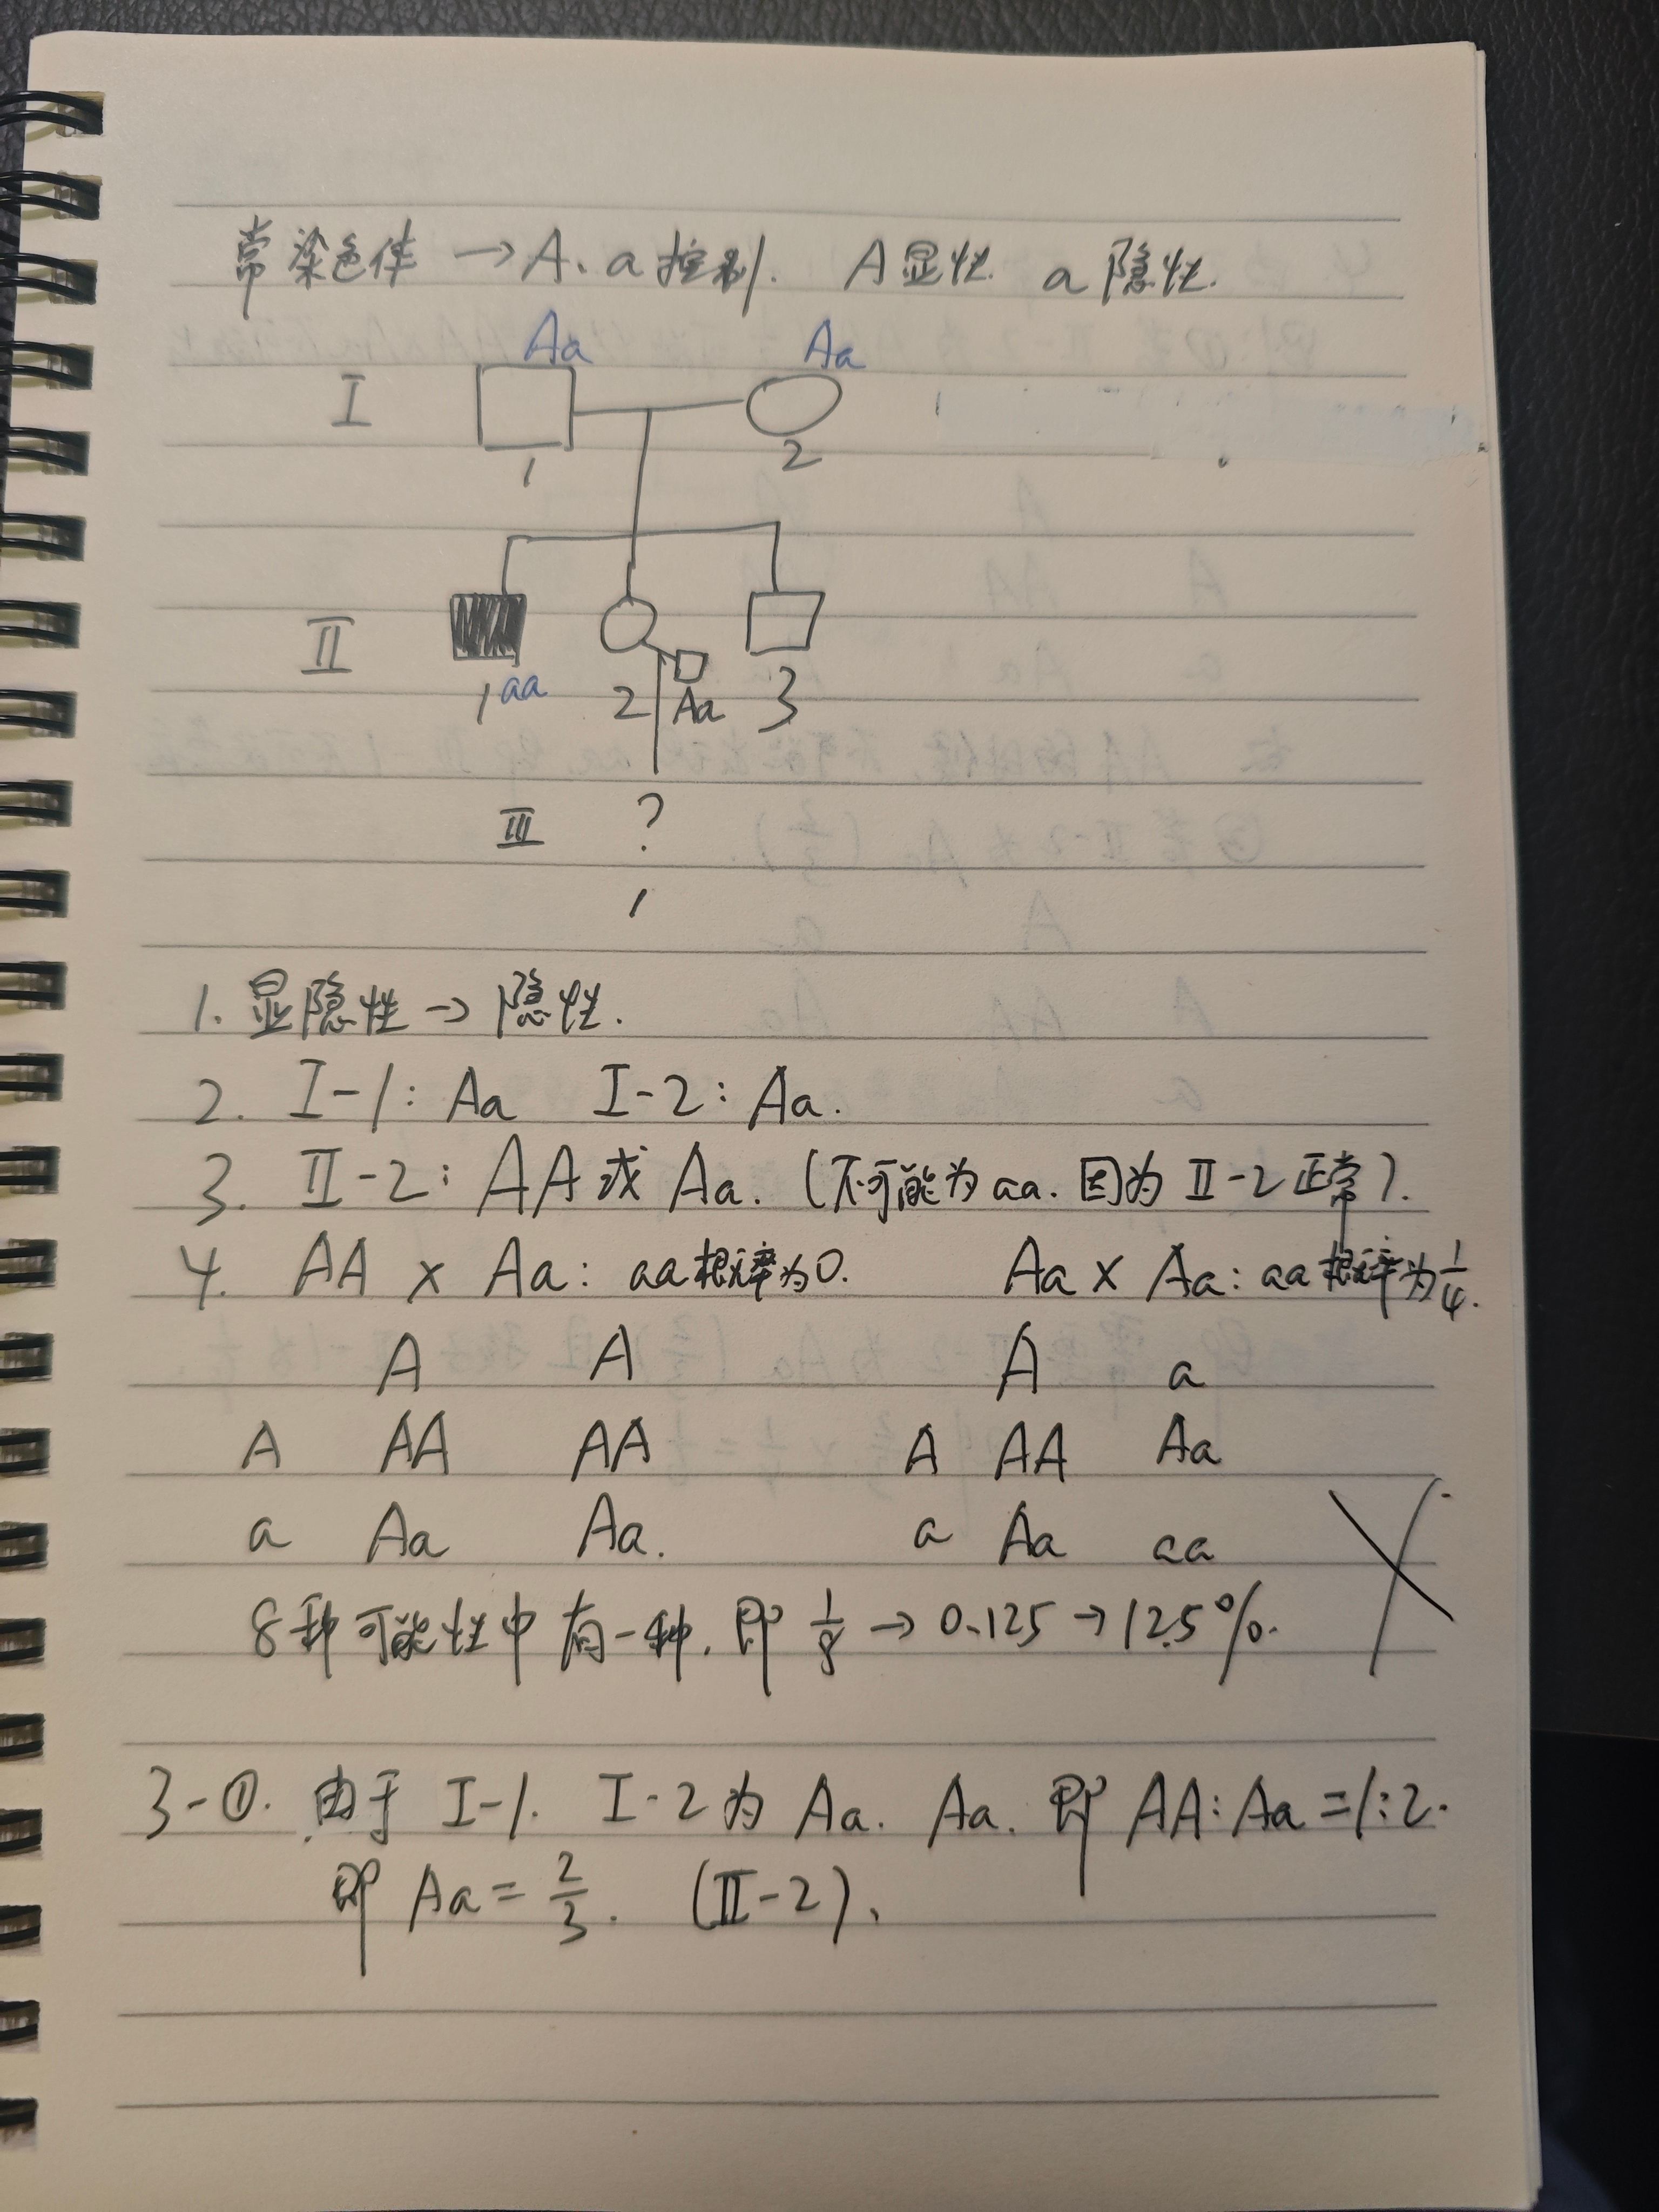 常染色体 → A、a控制. A显性. a隐性.
Aa Aa
I
1 2
II
1 aa 2 Aa 3
III ?
1
1. 显隐性 → 隐性.
2. I-1: Aa I-2: Aa.
3. II-2: AA或 Aa. (不可能为aa. 因为II-2正常).
4. AA × Aa: aa概率为0. Aa × Aa: aa概率为1/4.
A A A a
A AA AA A AA Aa
a Aa Aa. a Aa aa
8种可能性中有一种. 即 1/8 → 0.125 → 12.5%.
3-①. 由于 I-1. I-2为 Aa. Aa. 即 AA:Aa=1:2.
即 Aa = 2/3. (II-2).